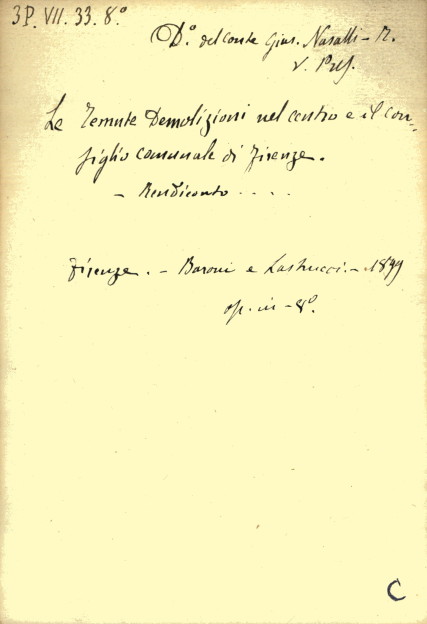 3P. VII. 33. 8.°
D.° del conte Gius. Nasalli - R.
V. Pres.
Le Temute Demolizioni nel centro e il con-
siglio comunale di Firenze.
- Rendiconto . . . .
Firenze. - Baroni e Lastrucci. - 1899
op. in - 8.°
C